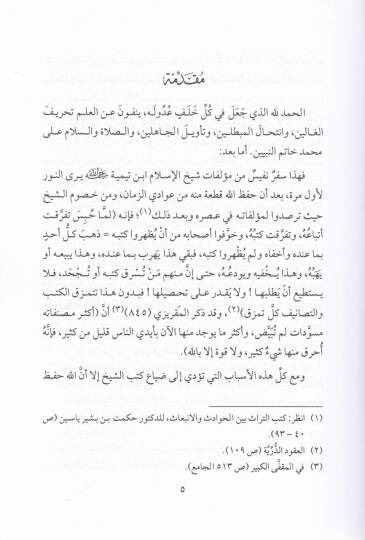 مُقدِّمة
الحمد لله الذي جَعَلَ في كُلِّ خَلَفٍ عُدُولَه، ينفونَ عن العلم تحريفَ
الغالين، وانتحالَ المبطلين، وتأويلَ الجاهلين، والصلاة والسلام على
محمد خاتم النبيين. أما بعد:
فهذا سفرٌ نفيسٌ من مؤلفات شيخ الإسلام ابن تيمية رحمه الله يرى النور
لأول مرة، بعد أن حفظ الله قطعة منه من عوادي الزمان، ومن خصوم الشيخ
حيث ترصدوا لمؤلفاته في عصره وبعد ذلك(١)؛ فإنه (لمَّا حُبِسَ تفرَّقت
أتباعُهُ، وتفرَّقت كتبُهُ، وخوَّفوا أصحابه من أن يُظهروا كتبه = ذهبَ كلُّ أحدٍ
بما عنده وأخفاه ولم يُظهروا كتبه، فبقي هذا يَهرب بما عنده، وهذا يبيعه أو
يَهَبُهُ، وهذا يُخْفيه ويودعُهُ، حتى إنَّ منهم مَنْ تُسرق كتبه أو تُجْحَد، فلا
يستطيع أنْ يَطلبها! ولا يَقدر على تحصيلها! فبدون هذا تتمزق الكتب
والتصانيف كلَّ تمزق)(٢)، وقد ذكر المقريزي (٨٤٥)(٣) أنَّ (أكثر مصنفاته
مسوَّدات لم تُبَيَّض، وأكثر ما يوجد منها الآن بأيدي الناس قليل من كثير، فإنَّه
أُحرق منها شيءٌ كثير، ولا قوة إلا بالله).
ومع كلِّ هذه الأسباب التي تؤدي إلى ضياع كتب الشيخ إلا أنَّ الله حفظ
(١) انظر: كتب التراث بين الحوادث والانبعاث، للدكتور حكمت بن بشير ياسين (ص
٤٠ – ٩٣).
(٢) العقود الدُّرِّيَّة (ص ١٠٩).
(٣) في المقفَّى الكبير (ص ٥١٣ الجامع).
٥